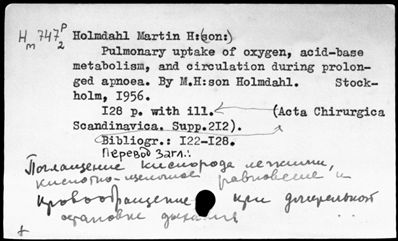 Н 747 р
m 2
Holmdahl Martin H:(son:)
Pulmonary uptake of oxygen, acid-base
metabolism, and circulation during prolon-
ged apnoea. By M.H:son Holmdahl. Stock-
holm, I956.
I28 p. with ill. (Acta Chirurgica
Scandinavica. Supp.2I2).
Bibliogr.: I22-I28.
Перевод Загл.:
Поглащение кислорода легкими,
кислотно-щелочное равновесие и
кровообращение при длительной
остановке дыхания